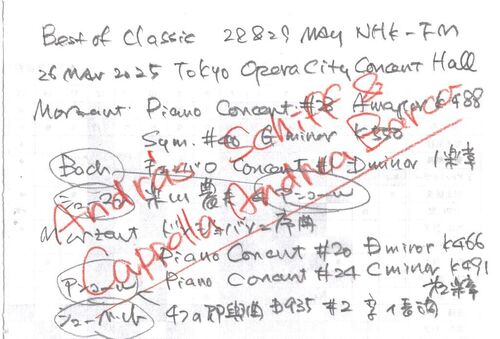 Best of Classic 28&29 May NHK-FM
26 Mar 2025 Tokyo Opera City Concert Hall
Morzaut Piano Concert #23 Amajor K488
Sym. #40 Gminor K550
Bach Concert #1 Dminor 1楽章
アンコール
Morzaut ドン・ジョバンニ序曲
Piano Concert #20 Dminor K466
アンコール Piano Concert #24 Cminor K491
2楽章
シューベルト 4つの即興曲 D935 #2
András Schiff &
Cappella Andrea Barca